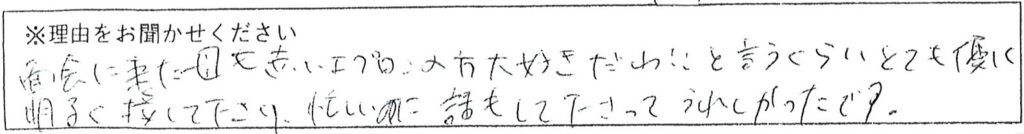 ※理由をお聞かせください
面会に来た日も赤いエプロンの方大好きだわ!!と言うぐらいとても優しく
明るく接して下さり、忙しいのに話もして下さってうれしかったです。